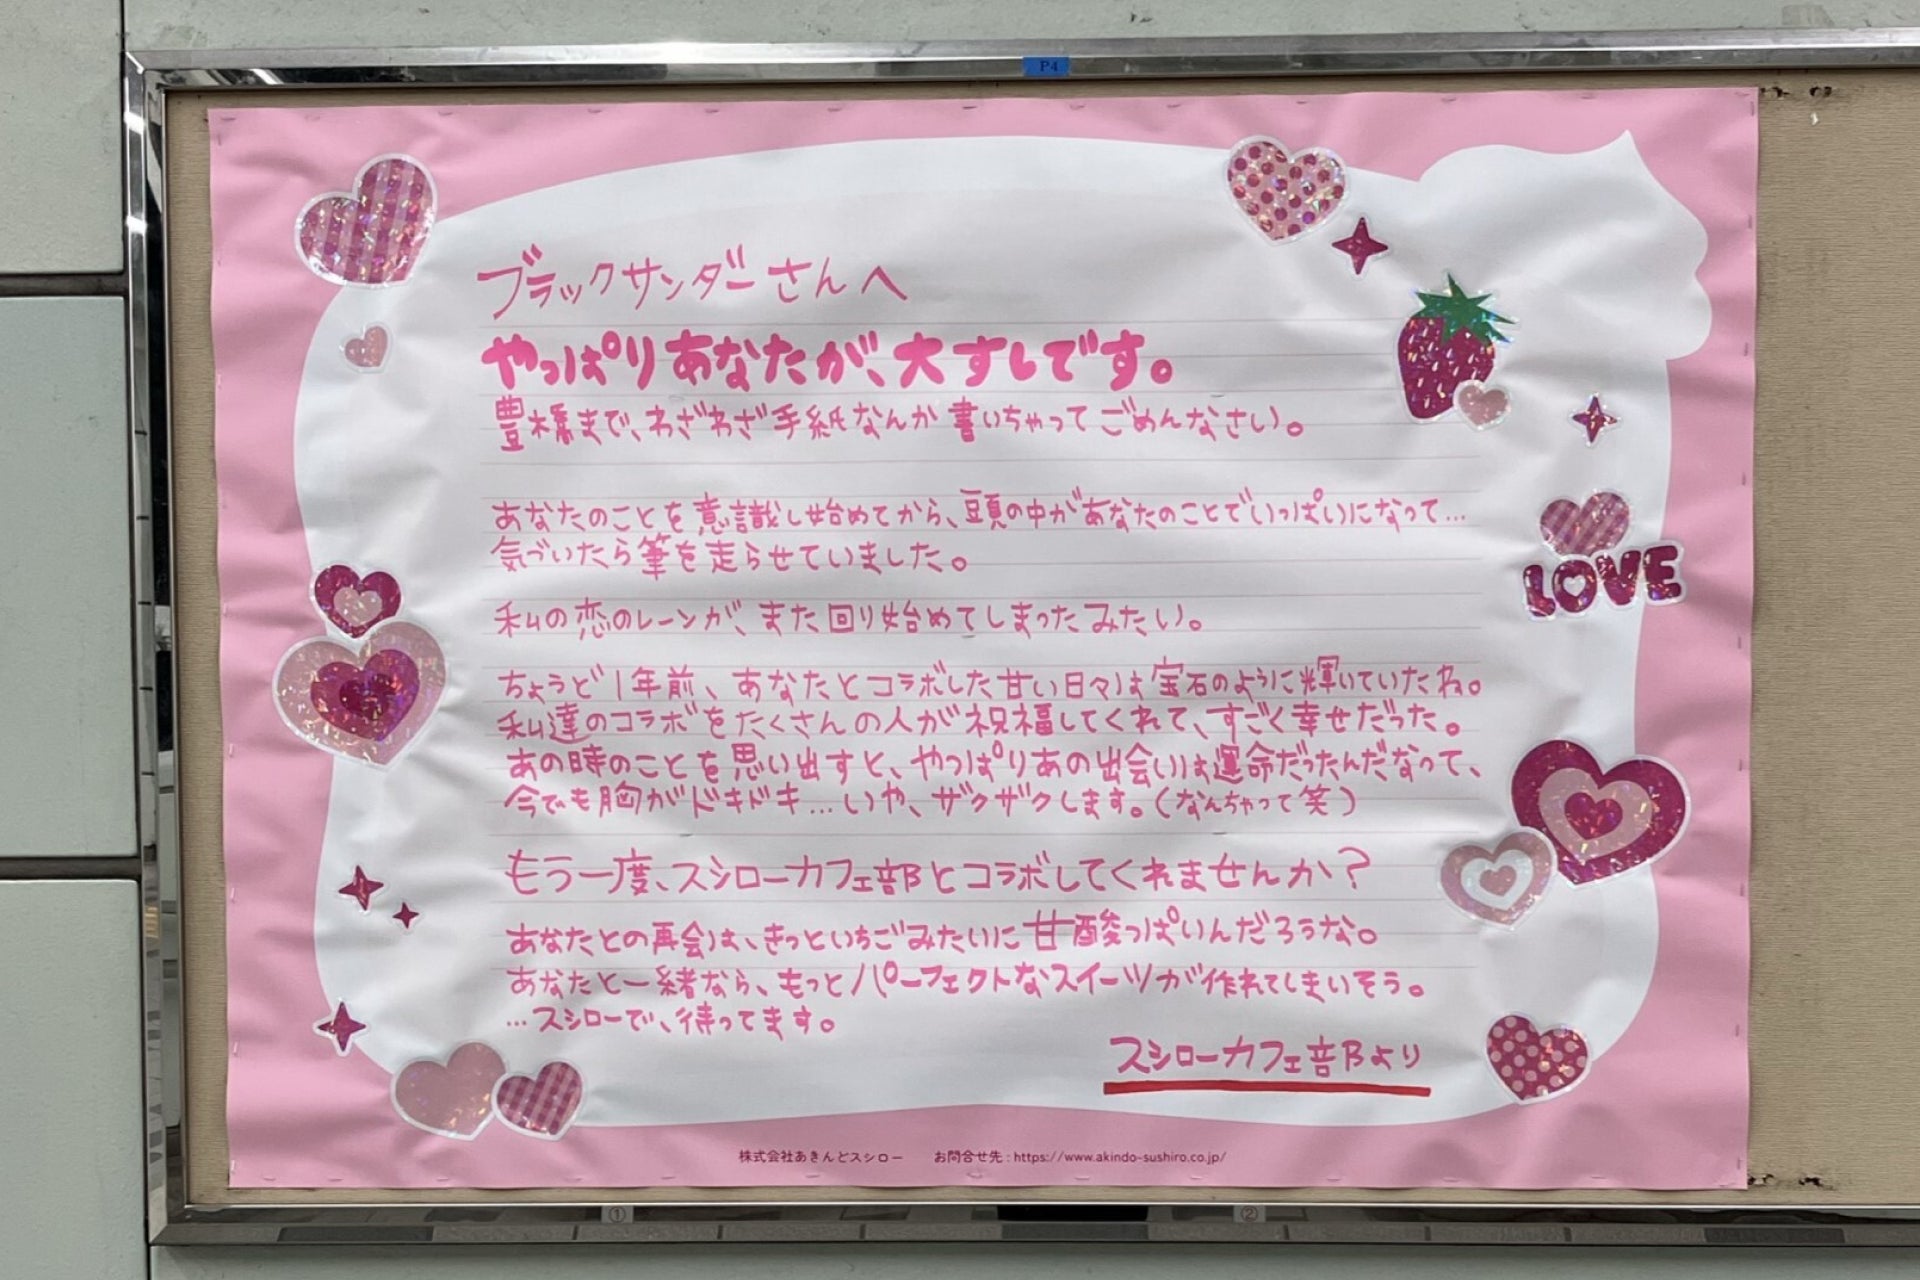 P4
ブラックサンダーさんへ
やっぱりあなたが、大すしです。
豊橋まで、わざわざ手紙なんか書いちゃってごめんなさい。
あなたのことを意識し始めてから、頭の中があなたのことでいっぱいになって…
気づいたら筆を走らせていました。
私の恋のレーンが、また回り始めてしまったみたい。
ちょうど1年前、あなたとコラボした甘い日々は宝石のように輝いていたね。
私達のコラボをたくさんの人が祝福してくれて、すごく幸せだった。
あの時のことを思い出すと、やっぱりあの出会いは運命だったんだなって、
今でも胸がドキドキ…いや、ザクザクします。(なんちゃって笑)
もう一度、スシローカフェ部とコラボしてくれませんか?
あなたとの再会は、きっといちごみたいに甘酸っぱいんだろうな。
あなたと一緒なら、もっとパーフェクトなスイーツが作れてしまいそう。
…スシローで、待ってます。
スシローカフェ部より
LOVE
株式会社あきんどスシロー お問合せ先:https://www.akindo-sushiro.co.jp/
① ②